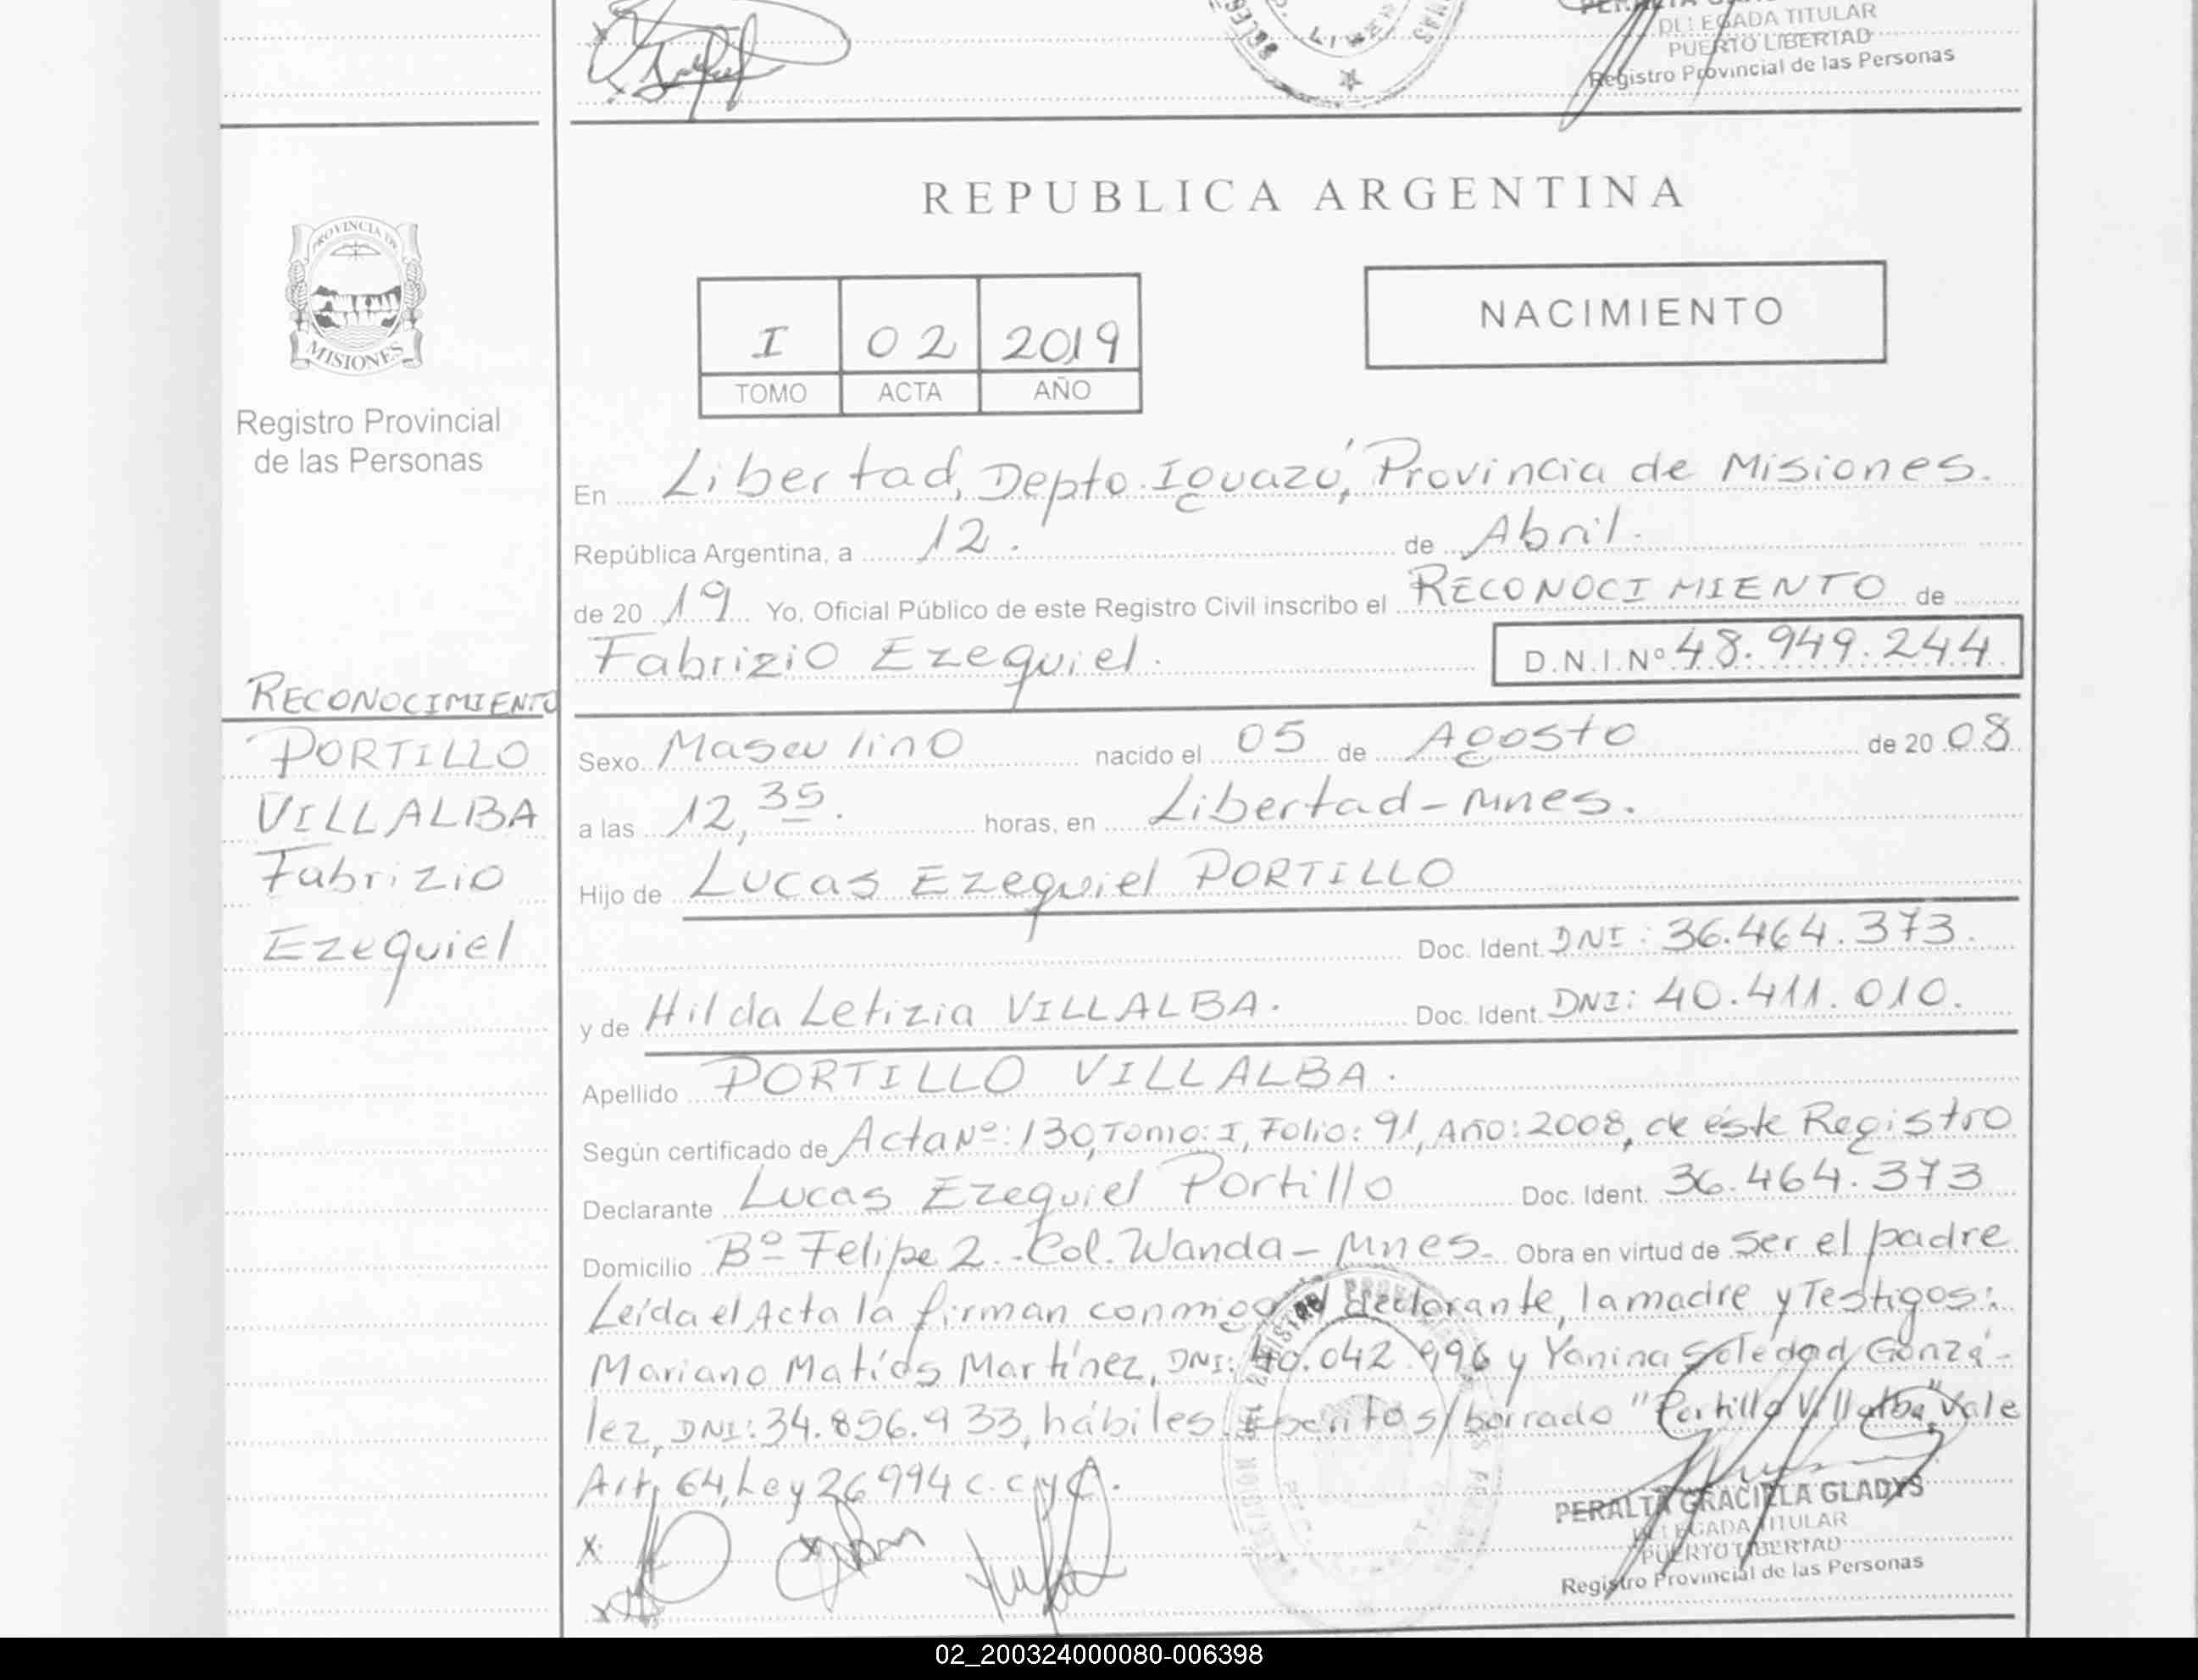 DELEGADA TITULAR
PUERTO LIBERTAD
Registro Provincial de las Personas
REPUBLICA ARGENTINA
PROVINCIA DE
MISIONES
Registro Provincial
de las Personas
NACIMIENTO
I 02 2019
TOMO ACTA AÑO
En Libertad, Depto. Iguazú, Provincia de Misiones.
República Argentina, a 12. de Abril.
de 20 19 Yo, Oficial Público de este Registro Civil inscribo el RECONOCIMIENTO de
Fabrizio Ezequiel. D.N.I.Nº 48.949.244
RECONOCIMIENTO
PORTILLO
VILLALBA
Fabrizio
Ezequiel
Sexo Masculino nacido el 05 de Agosto de 20 08
a las 12,35. horas, en Libertad-Mnes.
Hijo de Lucas Ezequiel PORTILLO
Doc. Ident. DNI: 36.464.373.
y de Hilda Letizia VILLALBA. Doc. Ident. DNI: 40.411.010.
Apellido PORTILLO VILLALBA.
Según certificado de Acta Nº: 130, Tomo: I, Folio: 91, Año: 2008, de éste Registro
Declarante Lucas Ezequiel Portillo Doc. Ident. 36.464.373
Domicilio Bº Felipe 2 - Col. Wanda - Mnes. Obra en virtud de ser el padre
Leída el Acta la firman conmigo el declarante, la madre y Testigos:
Mariano Matías Martínez, DNI: 40.042.996 y Yanina Soledad Gonzá-
lez, DNI: 34.856.933, hábiles. Escrito s/ borrado "Portillo Villalba" Vale
Art. 64, Ley 26994 C. C. y C.
PERALTA GRACIELA GLADYS
DELEGADA TITULAR
PUERTO LIBERTAD
Registro Provincial de las Personas
02_200324000080-006398